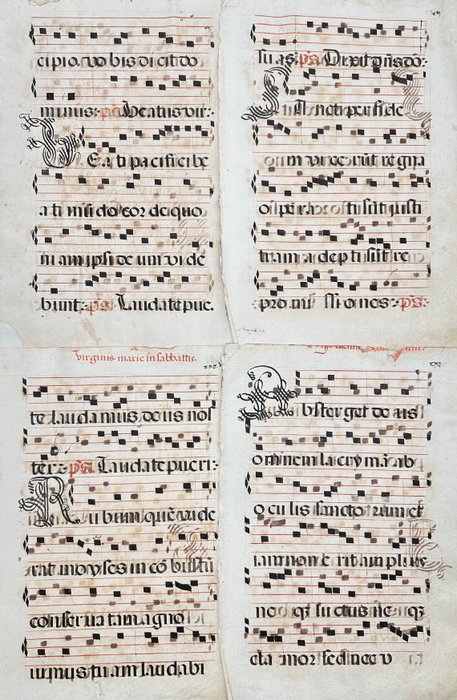 cipio. vo bis di cit do
minus: ps. Beatus vir:
B E a ti pa cifi ci be
a ti mū do cor de quo
ni am ipsi de um vi de
bunt: ps. Laudate pue.
su as. ps. Dixit dn̄s do:
S Ancti per fi de
o um vi ce rūt re gna
o pe ra ti sūt iusti
ti am a de p ti sūt re
pro mi ssi o nes: ps:
virginis marie in sabbatis.
te. lau da mus. de us nos
ter: ps. Laudate pueri:
R u bum quē vi de
rat moyses in cō bustū
conser va tam agno
vi mus tu am lau da bi
A bster get de us
omnem la cry mā ab
o cu lis sancto rum et
iam non e rit am pli us
ne qz lu ctus ne qz
cla mor sed nec